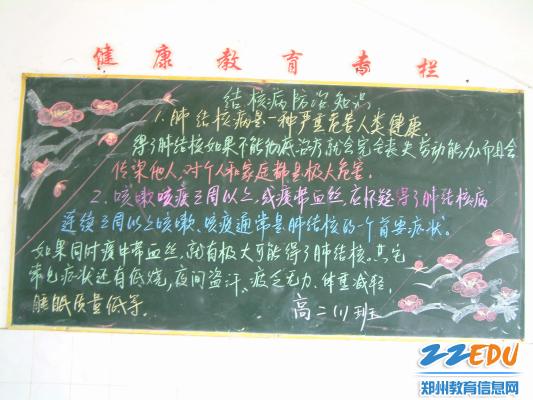 健康教育专栏
结核病防治知识
1.肺结核病是一种严重危害人类健康
得了肺结核如果不能彻底治疗就会完全丧失劳动能力,而且会
传染他人,对个人和家庭都是极大危害.
2.咳嗽咳痰三周以上,或痰带血丝,应怀疑得了肺结核病
连续三周以上咳嗽、咳痰通常是肺结核的一个首要症状。
如果同时痰中带血丝,就有极大可能得了肺结核。其它
常见症状还有低烧,夜间盗汗、疲乏无力、体重减轻,
睡眠质量低等.
高二(1)班
22EDU
郑州教育信息网